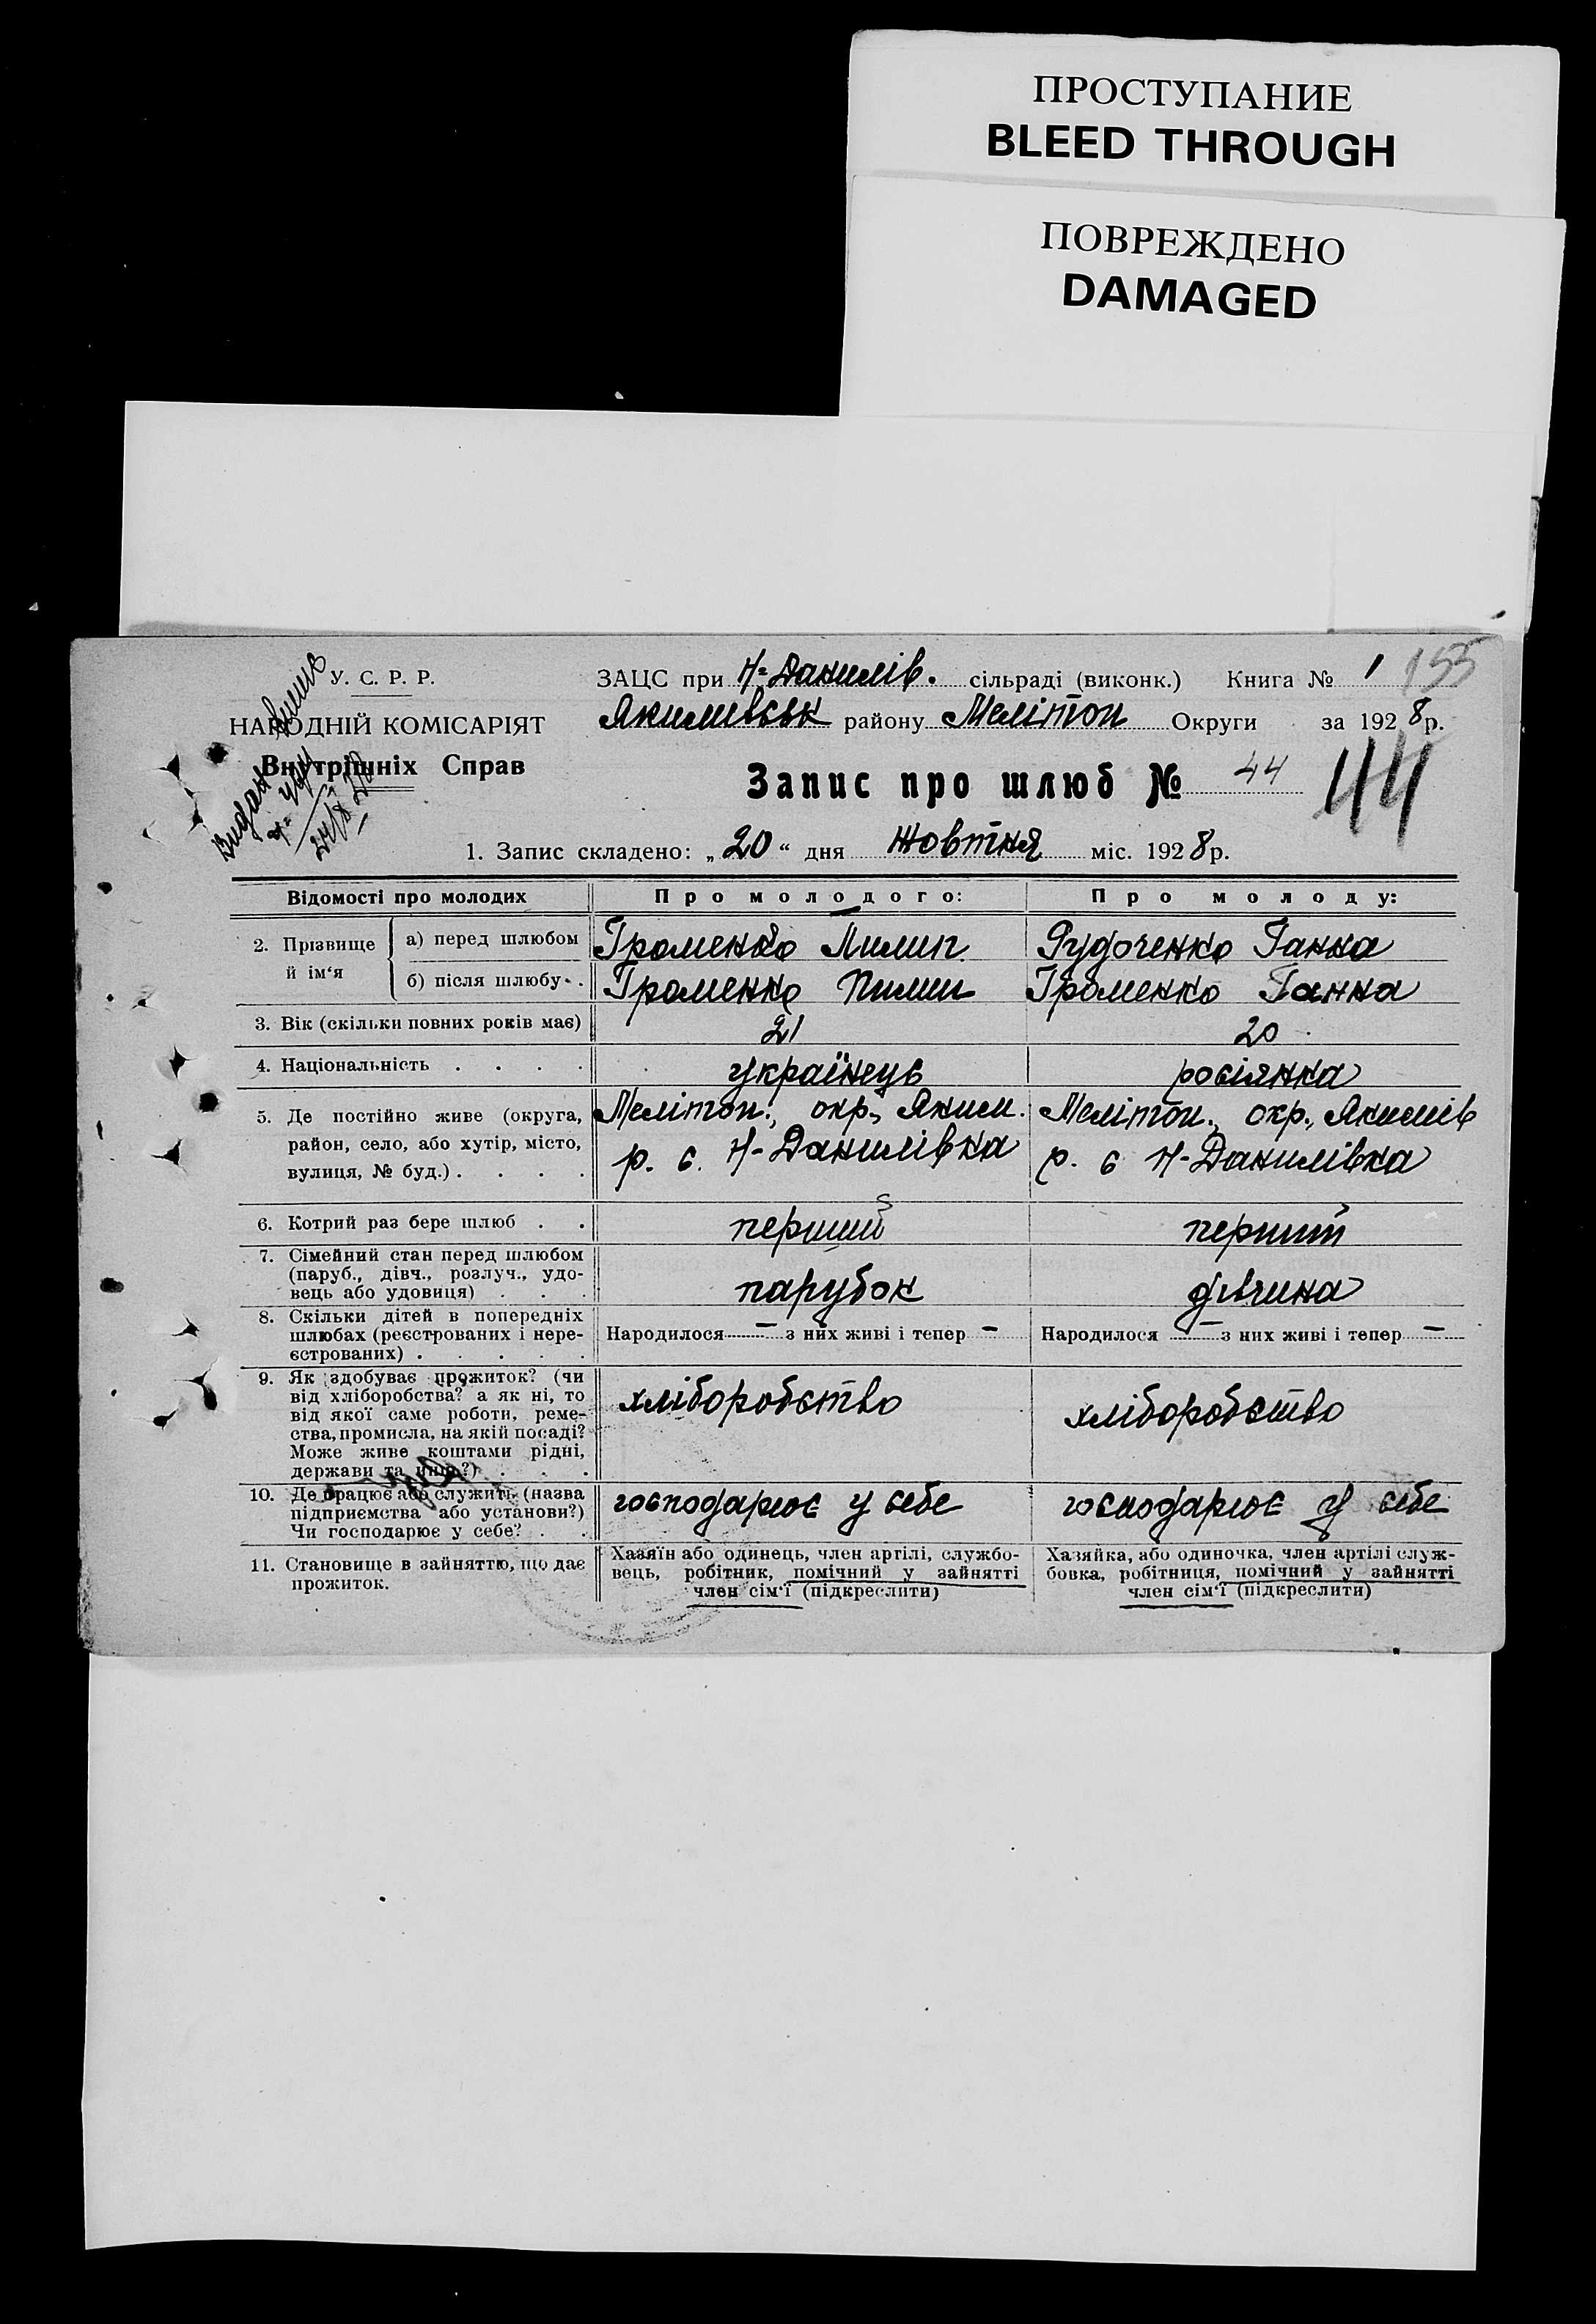 ПРОСТУПАНИЕ
BLEED THROUGH
ПОВРЕЖДЕНО
DAMAGED
У. С. Р. Р.
НАРОДНІЙ КОМІСАРІЯТ
Внутрішніх Справ
ЗАЦС при Н=Данилів. сільраді (виконк.) Книга № 1 155
Якимівськ району Мелітоп Округи за 1928р.
Запис про шлюб № 44 44
1. Запис складено: „20“ дня Жовтня міс. 1928р.
Відомості про молодих Про молодого: Про молоду:
2. Прізвище й ім‘я
а) перед шлюбом Громенко Пилип Рудоченко Ганна
б) після шлюбу Громенко Пилип Громенко Ганна
3. Вік (скільки повних років має) 21 20
4. Національність . . . . українець росіянка
5. Де постійно живе (округа,
район, село, або хутір, місто,
вулиця, № буд.) . . . .
Мелітоп., окр., Яким.
р. с. Н-Данилівка
Мелітоп., окр., Якимів
р. с Н-Данилівка
6. Котрий раз бере шлюб . . перший перший
7. Сімейний стан перед шлюбом
(паруб., дівч., розлуч., удо-
вець або удовиця) . . . парубок дівчина
8. Скільки дітей в попередніх
шлюбах (реєстрованих і нере-
єстрованих) . . . . .
Народилося — з них живі і тепер —
Народилося — з них живі і тепер —
9. Як здобуває прожиток? (чи
від хліборобства? а як ні, то
від якої саме роботи, реме-
ства, промисла, на якій посаді?
Може живе коштами рідні,
держави та инш.?) . . .
хліборобство
хліборобство
10. Де працює або служить (назва
підприємства або установи?)
Чи господарює у себе? . .
господарює у себе
господарює у себе
11. Становище в зайняттю, що дає
прожиток.
Хазяїн або одинець, член артілі, службо-
вець, робітник, помічний у зайнятті
член сім‘ї (підкреслити)
Хазяйка, або одиночка, член артілі служ-
бовка, робітниця, помічний у зайнятті
член сім‘ї (підкреслити)